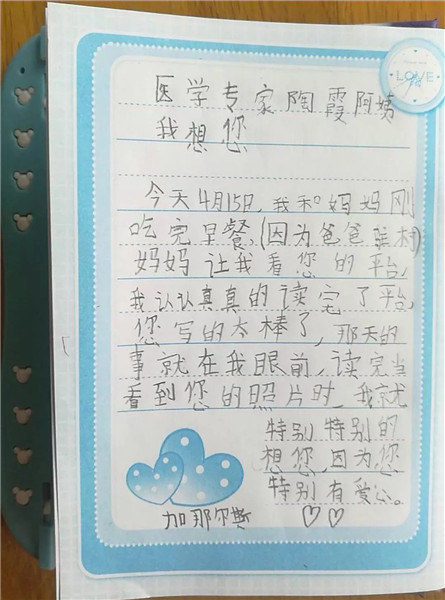 LOVE
医学专家陶霞阿姨
我想您
今天4月15日,我和妈妈刚
吃完早餐,(因为爸爸驻村)
妈妈让我看您的平台,
我认认真真的读完了平台,
您写的太棒了,那天的
事就在我眼前,读完当
看到您的照片时,我就
特别特别的
想您,因为您
特别有爱心。
加那尔斯